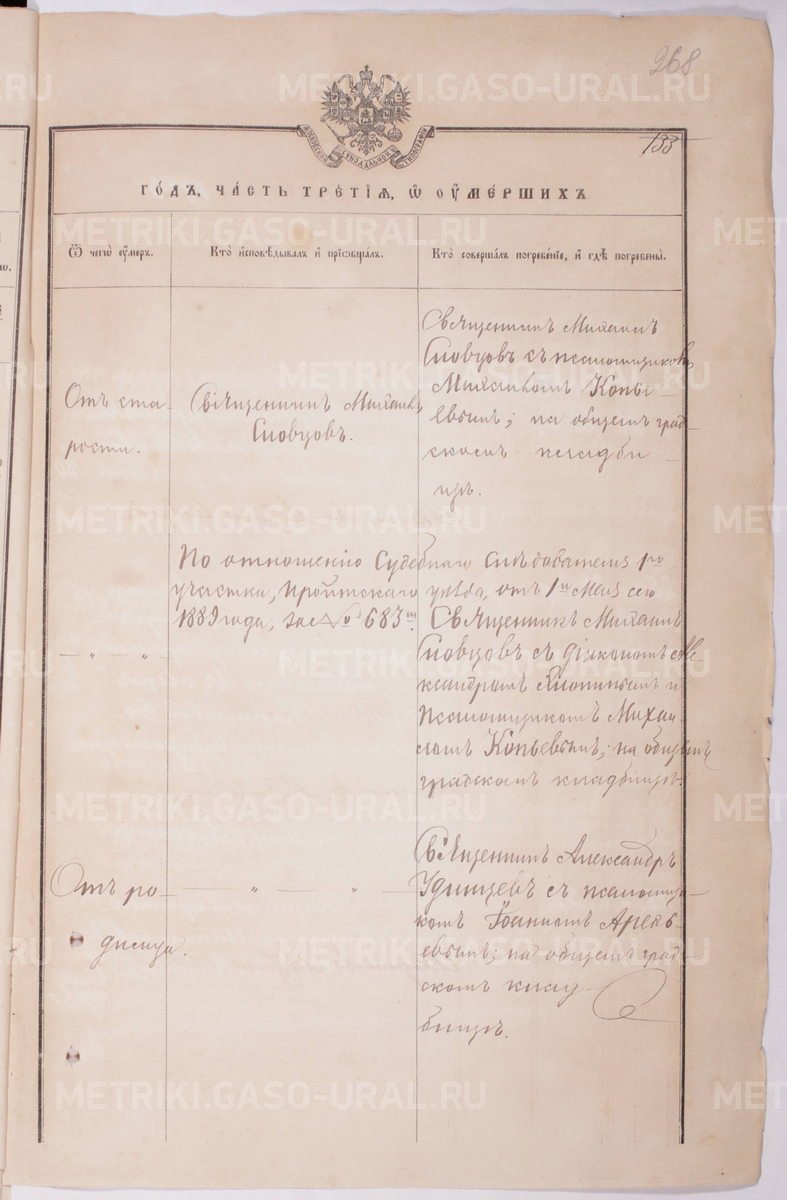 268
133
МОСКОВСКОЙ СИНОДАЛЬНОЙ ТИПОГРАФІИ
ГОДЪ, ЧАСТЬ ТРЕТІЯ, Ѡ ОУМЕРШИХЪ
Ѿ чегѡ оумеръ.
Кто исповѣдывалъ и пріобщалъ.
Кто совершалъ погребеніе, и гдѣ погребены.
Отъ ста-
рости.
Священникъ Михаилъ
Словцовъ.
Священникъ Михаилъ
Словцовъ съ псаломщикомъ
Михаиломъ Копье-
вымъ; на общемъ град-
скомъ кладби-
щѣ.
По отношенію Судебнаго слѣдователя 1го
участка, уѣзда, отъ 1го Мая сего
1889 года, за № 683мъ.
— „ — „
Священникъ Михаилъ
Словцовъ съ діякономъ Але-
ксандромъ и
Псаломщикомъ Михаи-
ломъ Копьевымъ; на общемъ
градскомъ кладбищѣ.
Отъ ро-
димца.
— „ — „ —
Священникъ Александръ
Удинцевъ съ псаломщи-
комъ Іоанномъ
на общемъ град-
скомъ клад-
бищѣ.
METRIKI.GASO-URAL.RU